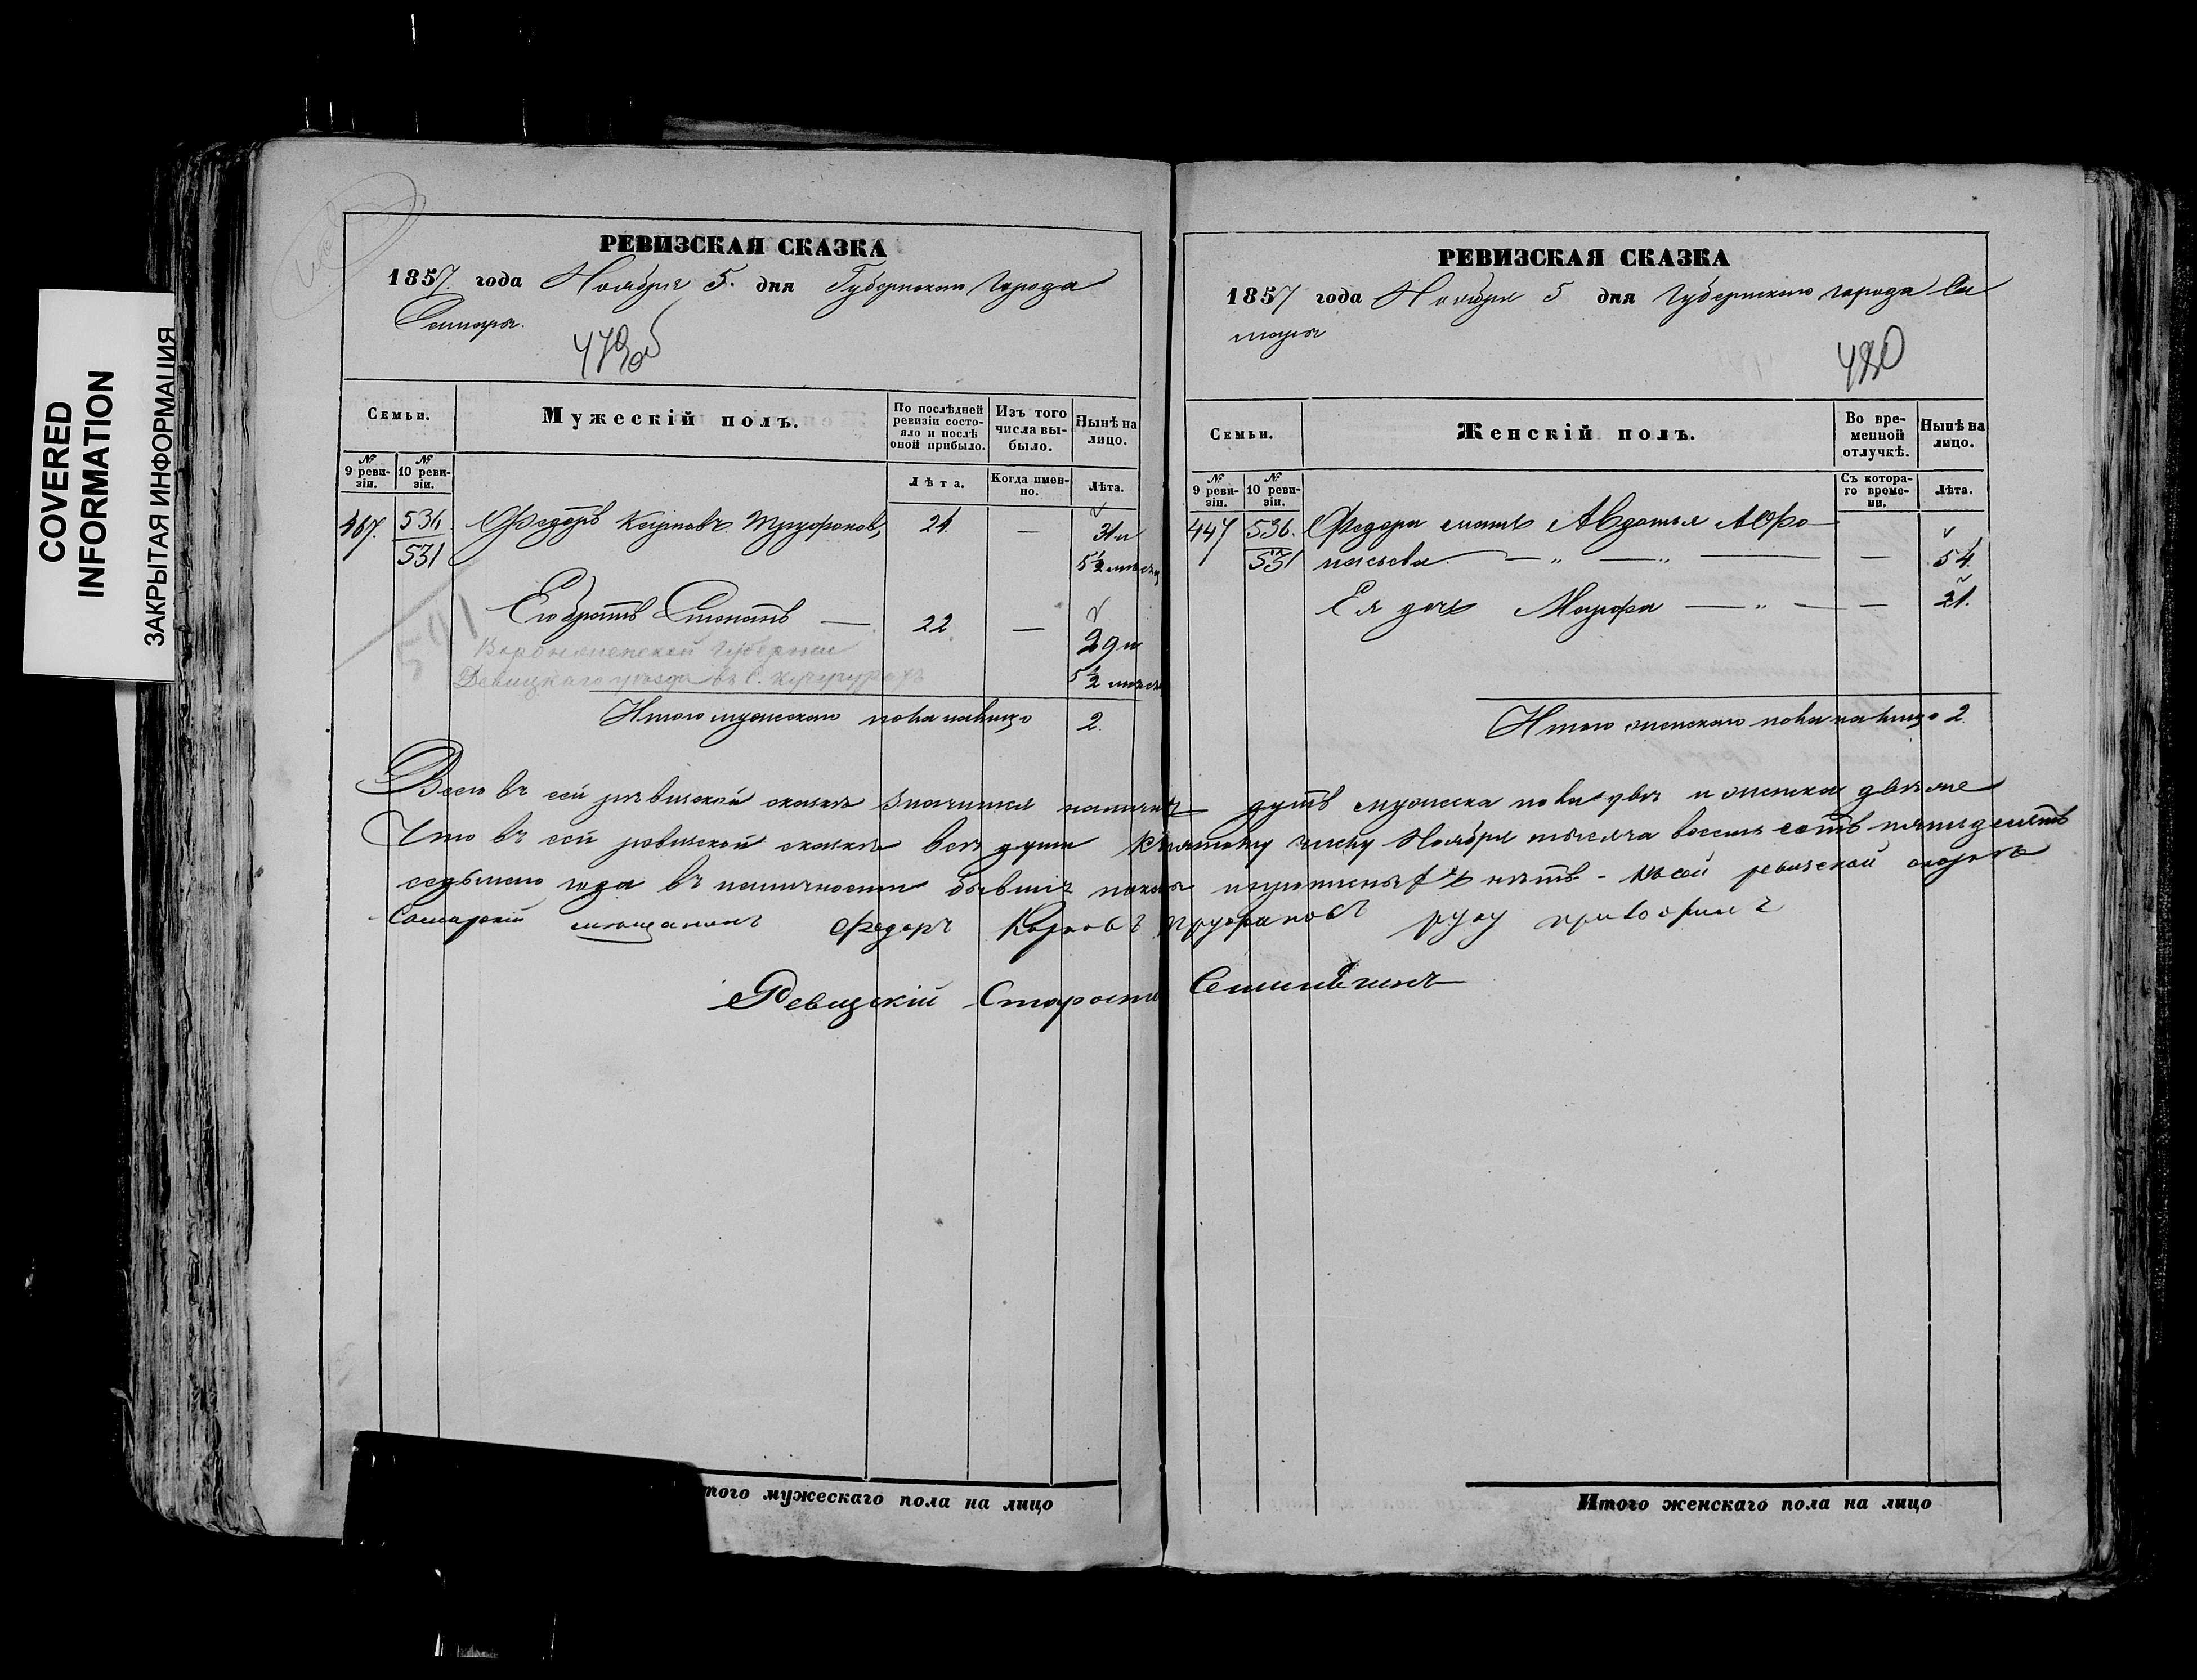 COVERED
INFORMATION
ЗАКРЫТАЯ ИНФОРМАЦИЯ
РЕВИЗСКАЯ СКАЗКА
1857. года Ноября 5. дня Губернскаго Города
Самары.
479об
Семьи.
Мужескій полъ.
По послѣдней ревизіи состояло и послѣ оной прибыло.
Изъ того числа выбыло.
Нынѣ на лицо.
№ 9 ревизіи.
№ 10 ревизіи.
Лѣта.
Когда именно.
Лѣта.
467. 536. Федоръ Карповъ Труфановъ 21 — 31 и
531 5½ мѣсяц
Его братъ Степанъ — 22 — 29 и
Воронежской Губернии 5½ мѣсяц
Девицкаго уѣзда въ С. Кучугурахъ
Итого мужескаго пола налицо 2.
РЕВИЗСКАЯ СКАЗКА
1857 года Ноября 5 дня Губернскаго города Са
мары
480
Семьи.
Женскій полъ.
Во временной отлучкѣ.
Нынѣ на лицо.
№ 9 ревизіи.
№ 10 ревизіи.
Съ котораго времени.
Лѣта.
447 536. Федора мать Авдотья Афо
531 насьева — " — " — — 54.
Ея дочь Марфа — " — — 21.
Итого женскаго пола налицо 2.
Всего въ сей ревизской сказкѣ значится налично душъ мужеска пола двѣ и женска двѣ же
Что въ сей ревизской сказкѣ всѣ души къ пятому числу Ноября тысяча восемь сотъ пятьдесятъ
седьмаго года въ наличности бывшіе показаны и прописныхъ нѣтъ - къ сей ревизской сказкѣ
Самарскій мещанинъ Федоръ Карповъ Труфановъ руку приложилъ
Ревизскій Староста
Итого мужескаго пола на лицо
Итого женскаго пола на лицо